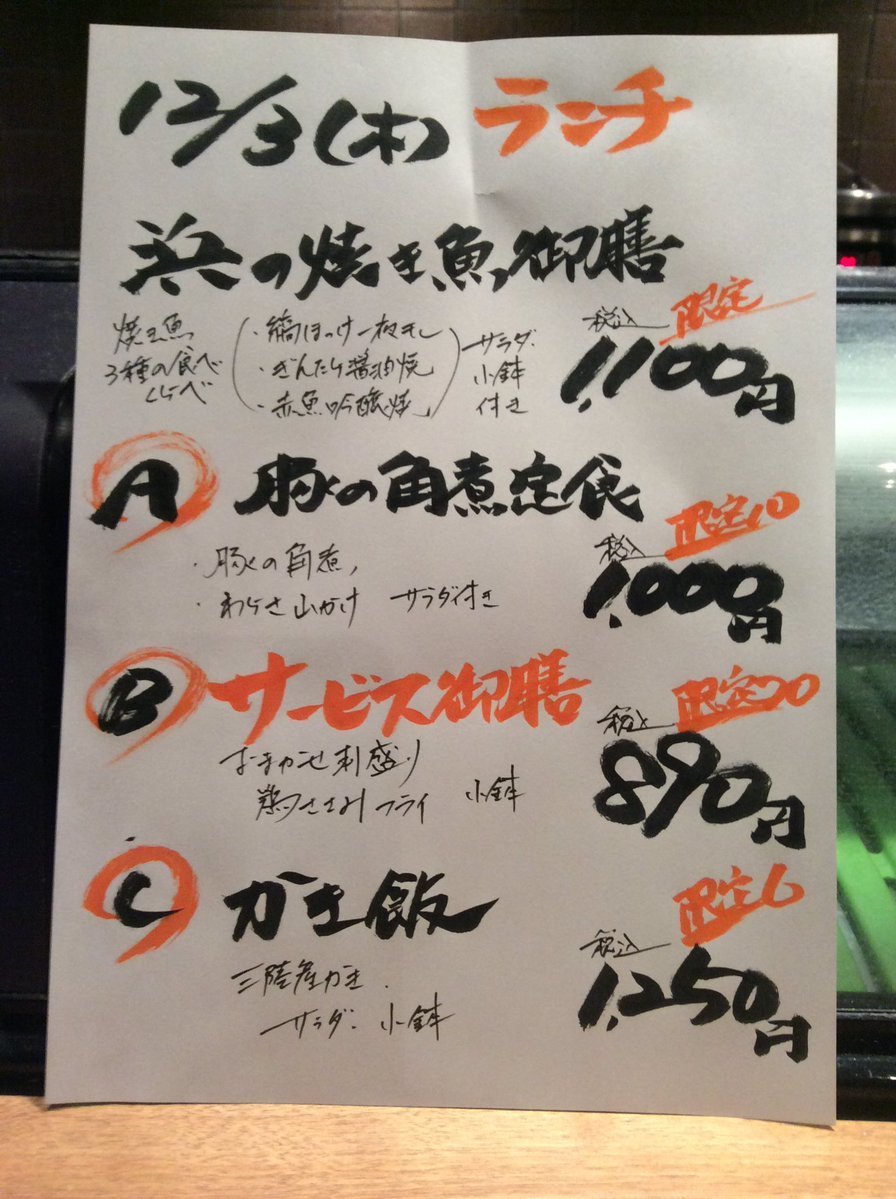 12/3(木) ランチ
浜の焼き魚御膳
焼き魚
3種の食べ
くらべ
・縞ほっけ一夜干し
・ぎんだら醤油焼
・赤魚吟醸焼
サラダ、
小鉢
付き
税込 限定
1,100円
A 豚の角煮定食
・豚の角煮、
・わらさ山かけ サラダ付き
税込 限定10
1,000円
B サービス御膳
おまかせ刺盛り
鶏ささみフライ 小鉢
税込 限定20
890円
C かき飯
三陸産かき、
サラダ、小鉢
税込 限定6
1,250円